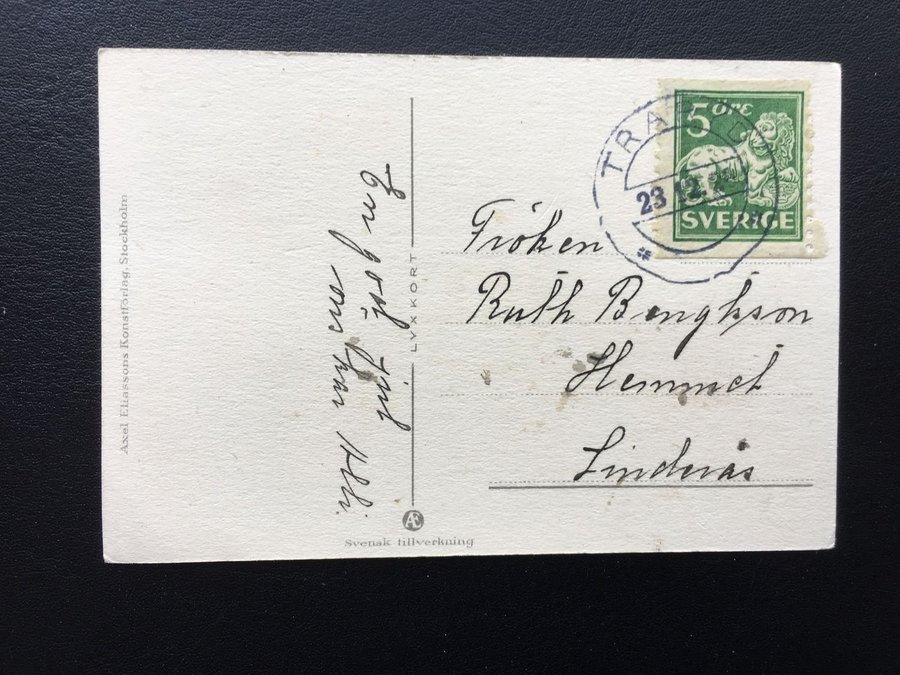 Axel Eliassons Konstförlag, Stockholm
En god jul
LYXKORT
Svenskt tillverkning
5 ÖRE
SVERIGE
23.12.
Fröken
Ruth Bengtsson
Hemmet
Linderås